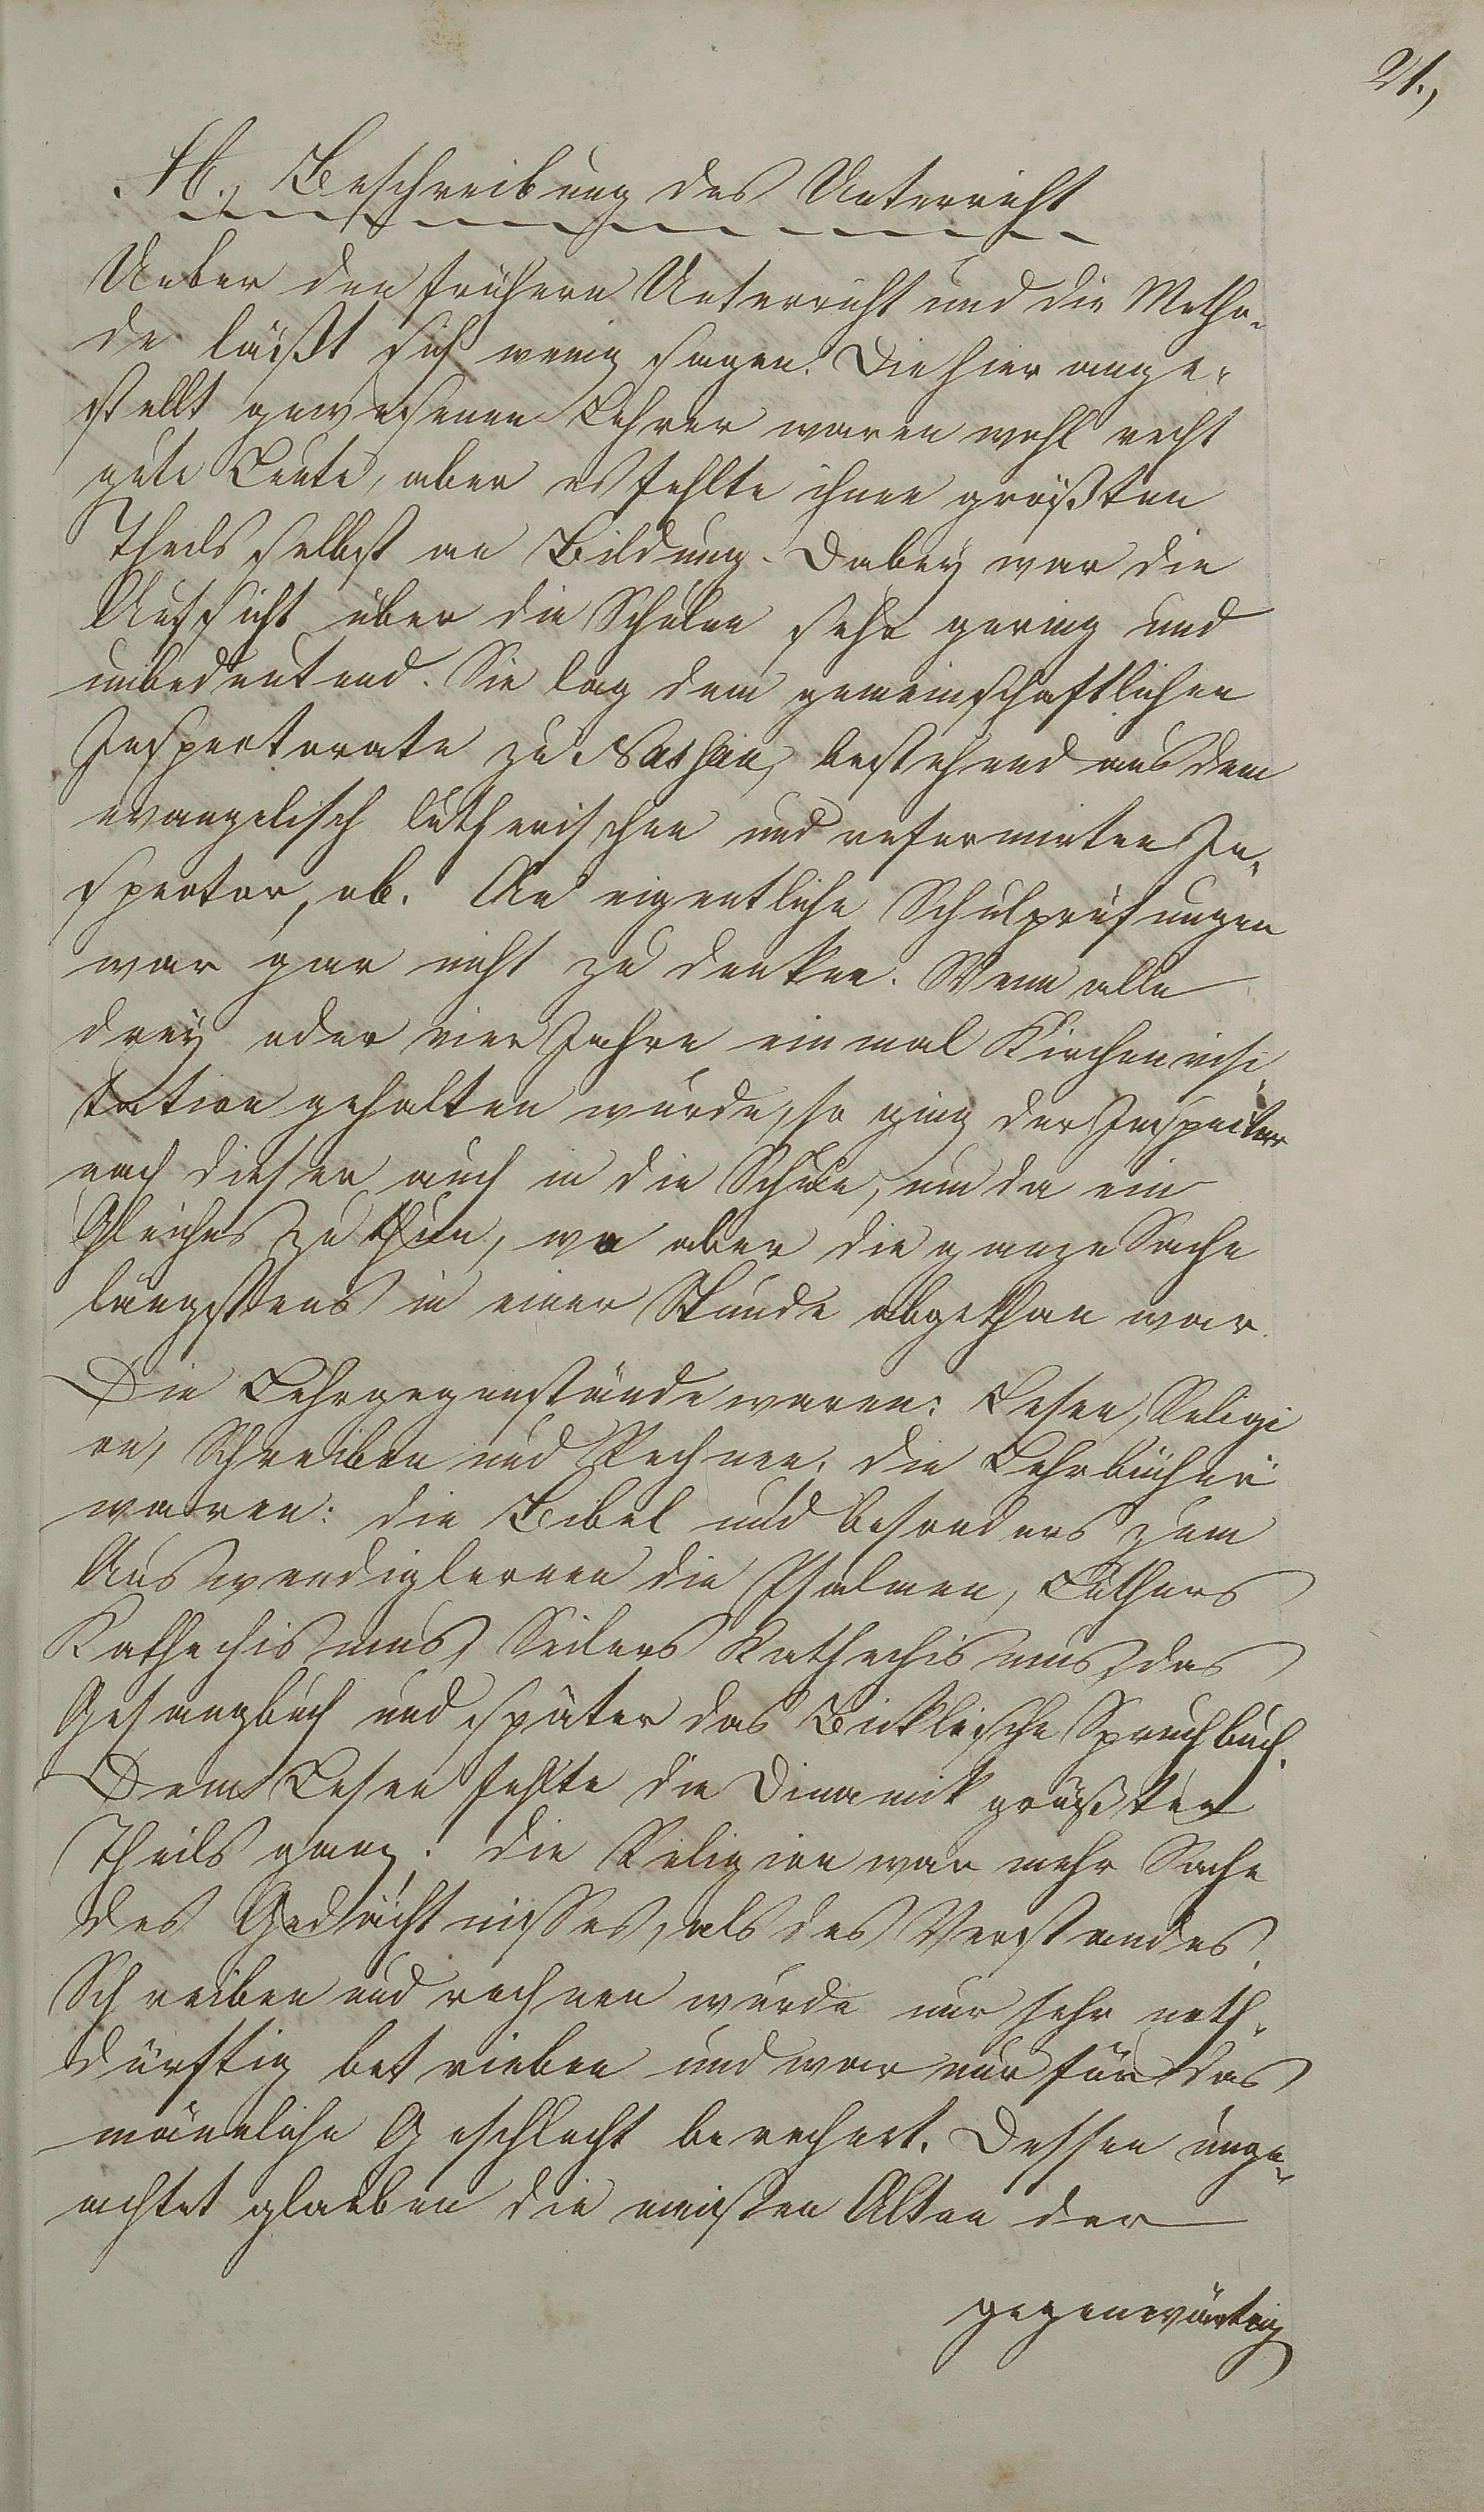 21.,
H., Beschreibung des Unterricht
Ueber den frühern Unterricht und die Metho-
de läißt sich wenig sagen. Die hier ange-
stellt gewesenen Lehrer waren wohl recht
gute Leute, aber es fehlte ihnen größten
Theils selbst an Bildung. Dabey war die
Aufsicht über die Schulen sehr gering und
unbedeutend. Sie lag dem gemeinschaftlichen
Inspectorate zu bestehend aus dem
evangelisch lutherischen und reformirten In-
spector, ob. An eigentliche Schulprüfungen
war gar nicht zu denken. Wenn alle
drey oder vier Jahre einmal Kirchenvisi
tation gehalten wurde, so ging der Inspector
nach dieser auch in die Schule, um da ein
Gleiches zu thun, wo aber die ganze Sache
längstens in einer Stunde abgethan war.
Die Lehrgegenstände waren: Lesen, Religi
on, Schreiben und Rechnen; die Lehrbücher
waren: die Bibel und besonders zum
Auswendiglernen die Psalmen, Luthers
Kathechismus, Seilers Kathechismus, das
Gesangbuch und später das Bicklische Spruchbuch.
Dem Lesen fehlte die Dinamik größten
Theils ganz; die Religion war mehr Sache
des Gedächtnisses, als des Verstandes.
Schreiben und rechnen wurde nur sehr noth-
dürftig betrieben und war nur für das
männliche Geschlecht berechnet. Dessen unge-
achtet glauben die meisten Alten der
gegenwärtig